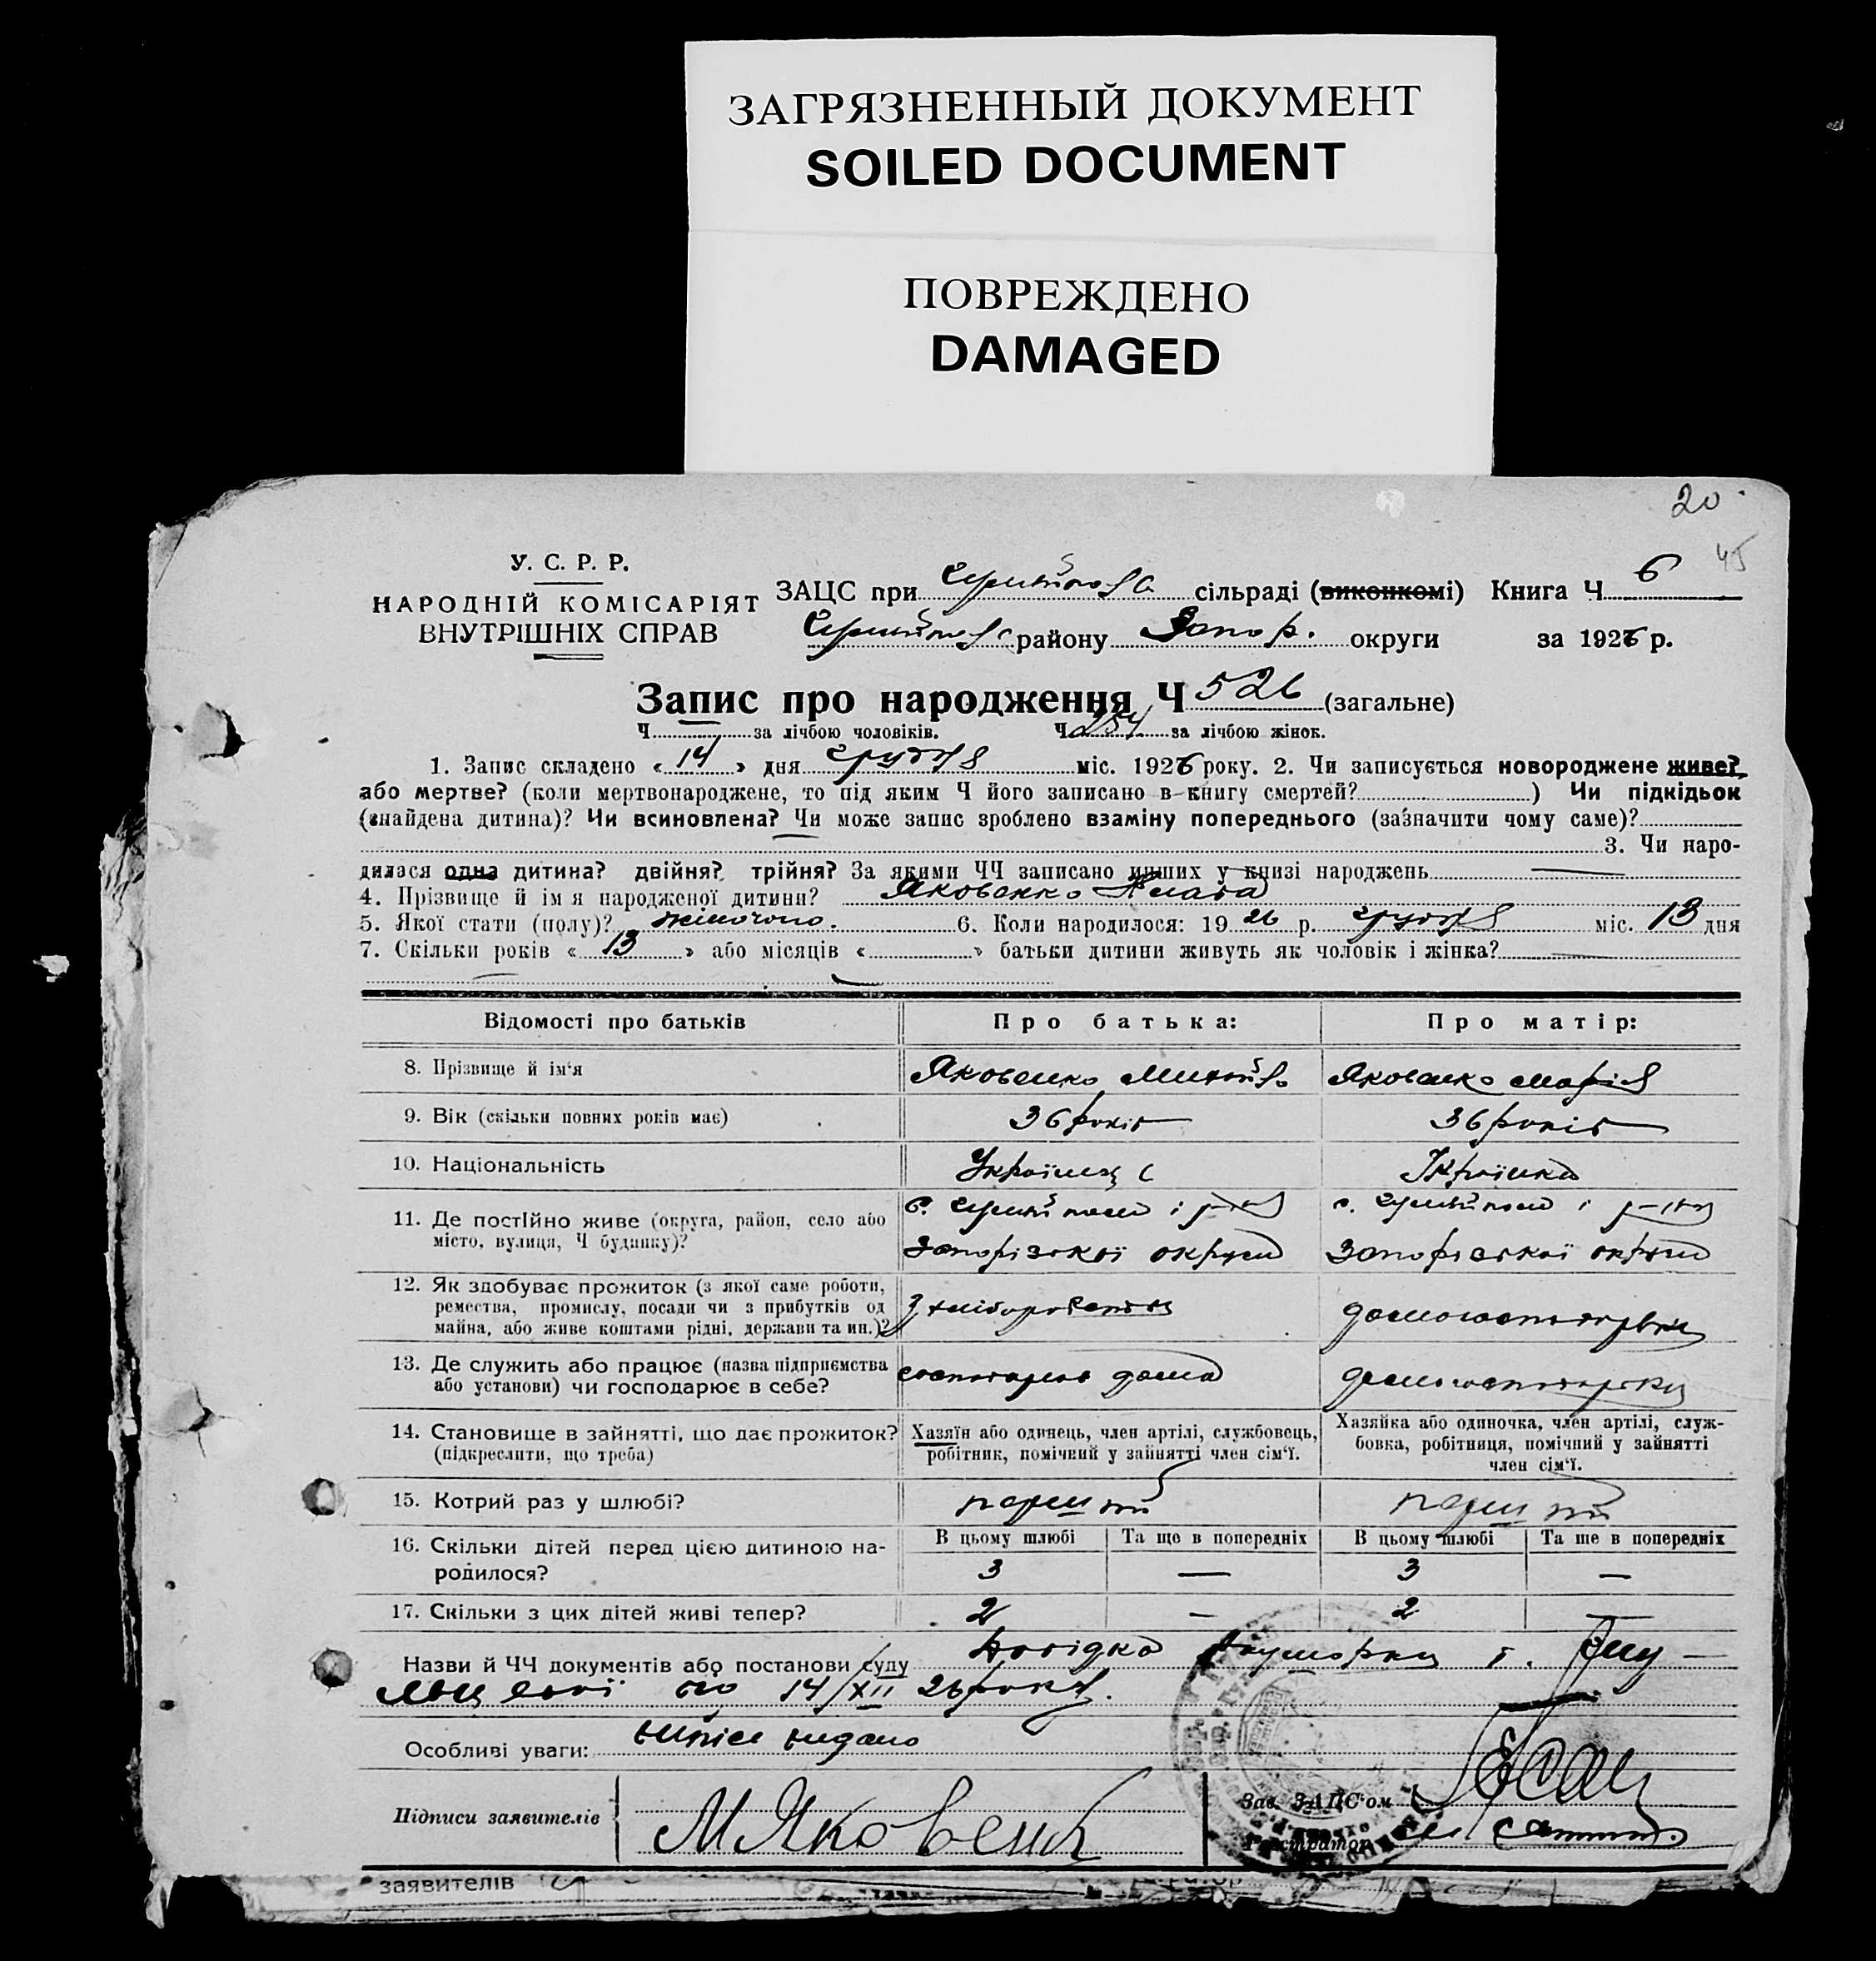 ЗАГРЯЗНЕННЫЙ ДОКУМЕНТ
SOILED DOCUMENT
ПОВРЕЖДЕНО
DAMAGED
20
45
У. С. Р. Р.
НАРОДНІЙ КОМІСАРІЯТ
ВНУТРІШНІХ СПРАВ
ЗАЦС при сільраді (виконкомі) Книга Ч 6
району Запор. округи за 1926 р.
Запис про народження Ч 526 (загальне)
Ч за лічбою чоловіків. Ч 254 за лічбою жінок.
1. Запис складено « 14 » дня грудня міс. 1926 року. 2. Чи записується новороджене живе?
або мертве? (коли мертвонароджене, то під яким Ч його записано в книгу смертей? ) Чи підкідьок
(знайдена дитина)? Чи всиновлена? Чи може запис зроблено взаміну попереднього (зазначити чому саме)?
3. Чи наро-
дилася одна дитина? двійня? трійня? За якими ЧЧ записано инших у книзі народжень
4. Прізвище й ім я народженої дитини? Яковенко
5. Якої стати (полу)? жіночого. 6. Коли народилося: 1926 р. грудня міс. 13 дня
7. Скільки років « 13 » або місяців « » батьки дитини живуть як чоловік і жінка?
Відомості про батьків Про батька: Про матір:
8. Прізвище й ім'я Яковенко Яковенко Марія
9. Вік (скільки повних років має) 36 років 36 років
10. Національність Українец Українка
11. Де постійно живе (округа, район, село або
місто, вулиця, Ч будинку)? Запорізської округи Запорізської округи
12. Як здобуває прожиток (з якої саме роботи,
ремества, промислу, посади чи з прибутків од
майна, або живе коштами рідні, держави та ин.)? домогосподарка
13. Де служить або працює (назва підприємства
або установи) чи господарює в себе? господарює дома домогосподарка
14. Становище в зайнятті, що дає прожиток?
(підкреслити, що треба)
Хазяїн або одинець, член артілі, службовець,
робітник, помічний у зайнятті член сім'ї.
Хазяйка або одиночка, член артілі, служ-
бовка, робітниця, помічний у зайнятті
член сім'ї.
15. Котрий раз у шлюбі? перший перший
16. Скільки дітей перед цією дитиною на-
родилося?
В цьому шлюбі Та ще в попередніх В цьому шлюбі Та ще в попередніх
3 — 3 —
17. Скільки з цих дітей живі тепер? 2 — 2 —
Назви й ЧЧ документів або постанови суду Довідка Акушорки
14/XII 26 року.
Особливі уваги: видано
Підписи заявителів М Яковенко
Зав. ЗАЦС'ом
Реєстратор
заявителів